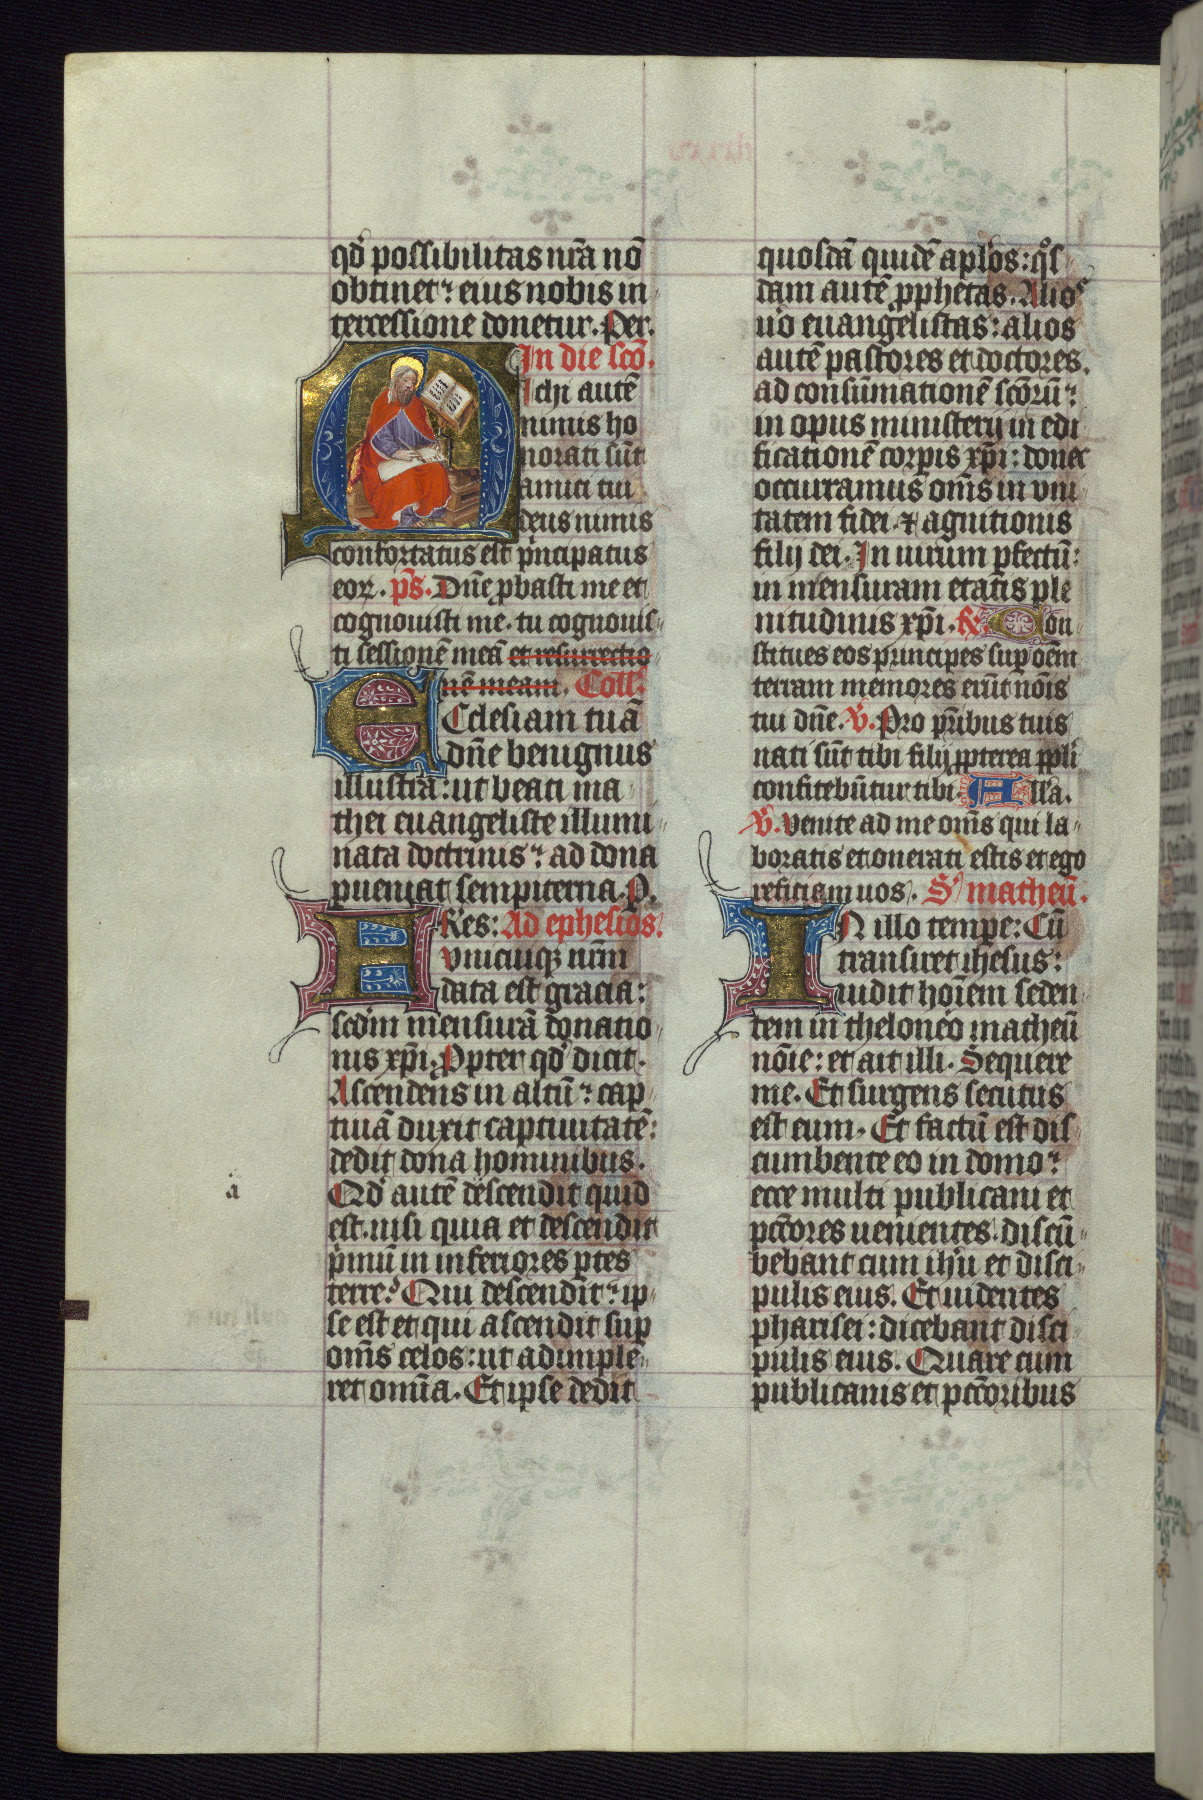 qd possibilitas nr̄a nō
obtinet: eius nobis in
tercessione donetur. Per.
In die scō.
Michi autē
nimis ho
norati sūt
amici tui
deus nimis
confortatus est pⁱncipatus
eoꝝ. ps̄. Dn̄e ꝓbasti me et
cognouisti me. tu cognouis
ti sessionē meā et resurrectio
nē meam. Coll'.
Ecclesiam tuā
dn̄e benignus
illustra: ut beati ma
thei euangeliste illumi
nata doctrinis: ad dona
ꝑueniat sempiterna. P.
Fr̄es: Ad ephesios.
vnicuiqꝫ nr̄m
data est gracia:
scdm mensurā donatio
nis xp̄i. Ꝓpter qd dicit.
Ascendens in altū: cap
tiuā duxit captiuitatē:
dedit dona hominibus.
Qd autē descendit quid
est. nisi quia et descendit
pⁱmū in inferiores ꝑtes
a
terre? Qui descendit: ip
se est et qui ascendit suꝑ
om̄s celos: ut adimple
ret omīa. Et ipse dedit
quosdā quidē apl'os: qͦs
dam autē ꝓphetas. Alios
uͦo euangelistas: alios
autē pastores et doctores.
ad consūmationē scōrū:
in opus ministerij in edi
ficationē corꝑis xp̄i: donec
occurramus om̄s in vni
tatem fidei. ⁊ agnitionis
filij dei. In uirum ꝑfectū:
in mensuram etatis ple
nitudinis xp̄i. R̄. Con
stitues eos principes suꝑ oēm
terram memores erūt nōis
tui dn̄e. V̄. Pro pr̄ibus tuis
nati sūt tibi filij ꝓpterea ppl'i
confitebūtur tibi. All'a.
V̄. Venite ad me om̄s qui la
boratis et onerati estis et ego
reficiam uos. S' matheū.
IN illo tempe: Cū
transiret ihesus:
uidit hoīem seden
tem in theloneo matheū
nōie: et ait illi. Sequere
me. Et surgens secutus
est eum. Et factū est dis
cumbente eo in domo:
ecce multi publicani et
pctōres uenientes. discū
bebant cum ih'u et disci
pulis eius. Et uidentes
pharisei: dicebant disci
pulis eius. Quare cum
publicanis et pctōribus